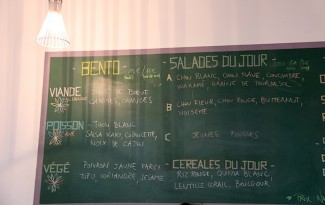 - BENTO -
VIANDE
BŒUF
OIGNONS, ORANGES
POISSON
- THON BLANC
SALSA KAKI, CIBOULETTE,
NOIX DE CAJOU
VÉGÉ
- POIVRON JAUNE FARCI
TOFU, CORIANDRE, SÉSAME
- SALADES DU JOUR -
A
CHOU BLANC, CHOU RAVE, CONCOMBRE,
WAKAMÉ, GRAINE DE TOURNESOL
B
CHOU FLEUR, CHOU ROUGE, BUTTERNUT,
NOISETTE
C
JEUNES POUSSES
- CEREALES DU JOUR -
RIZ ROUGE, QUINOA BLANC,
LENTILLE CORAIL, BOULGOUR